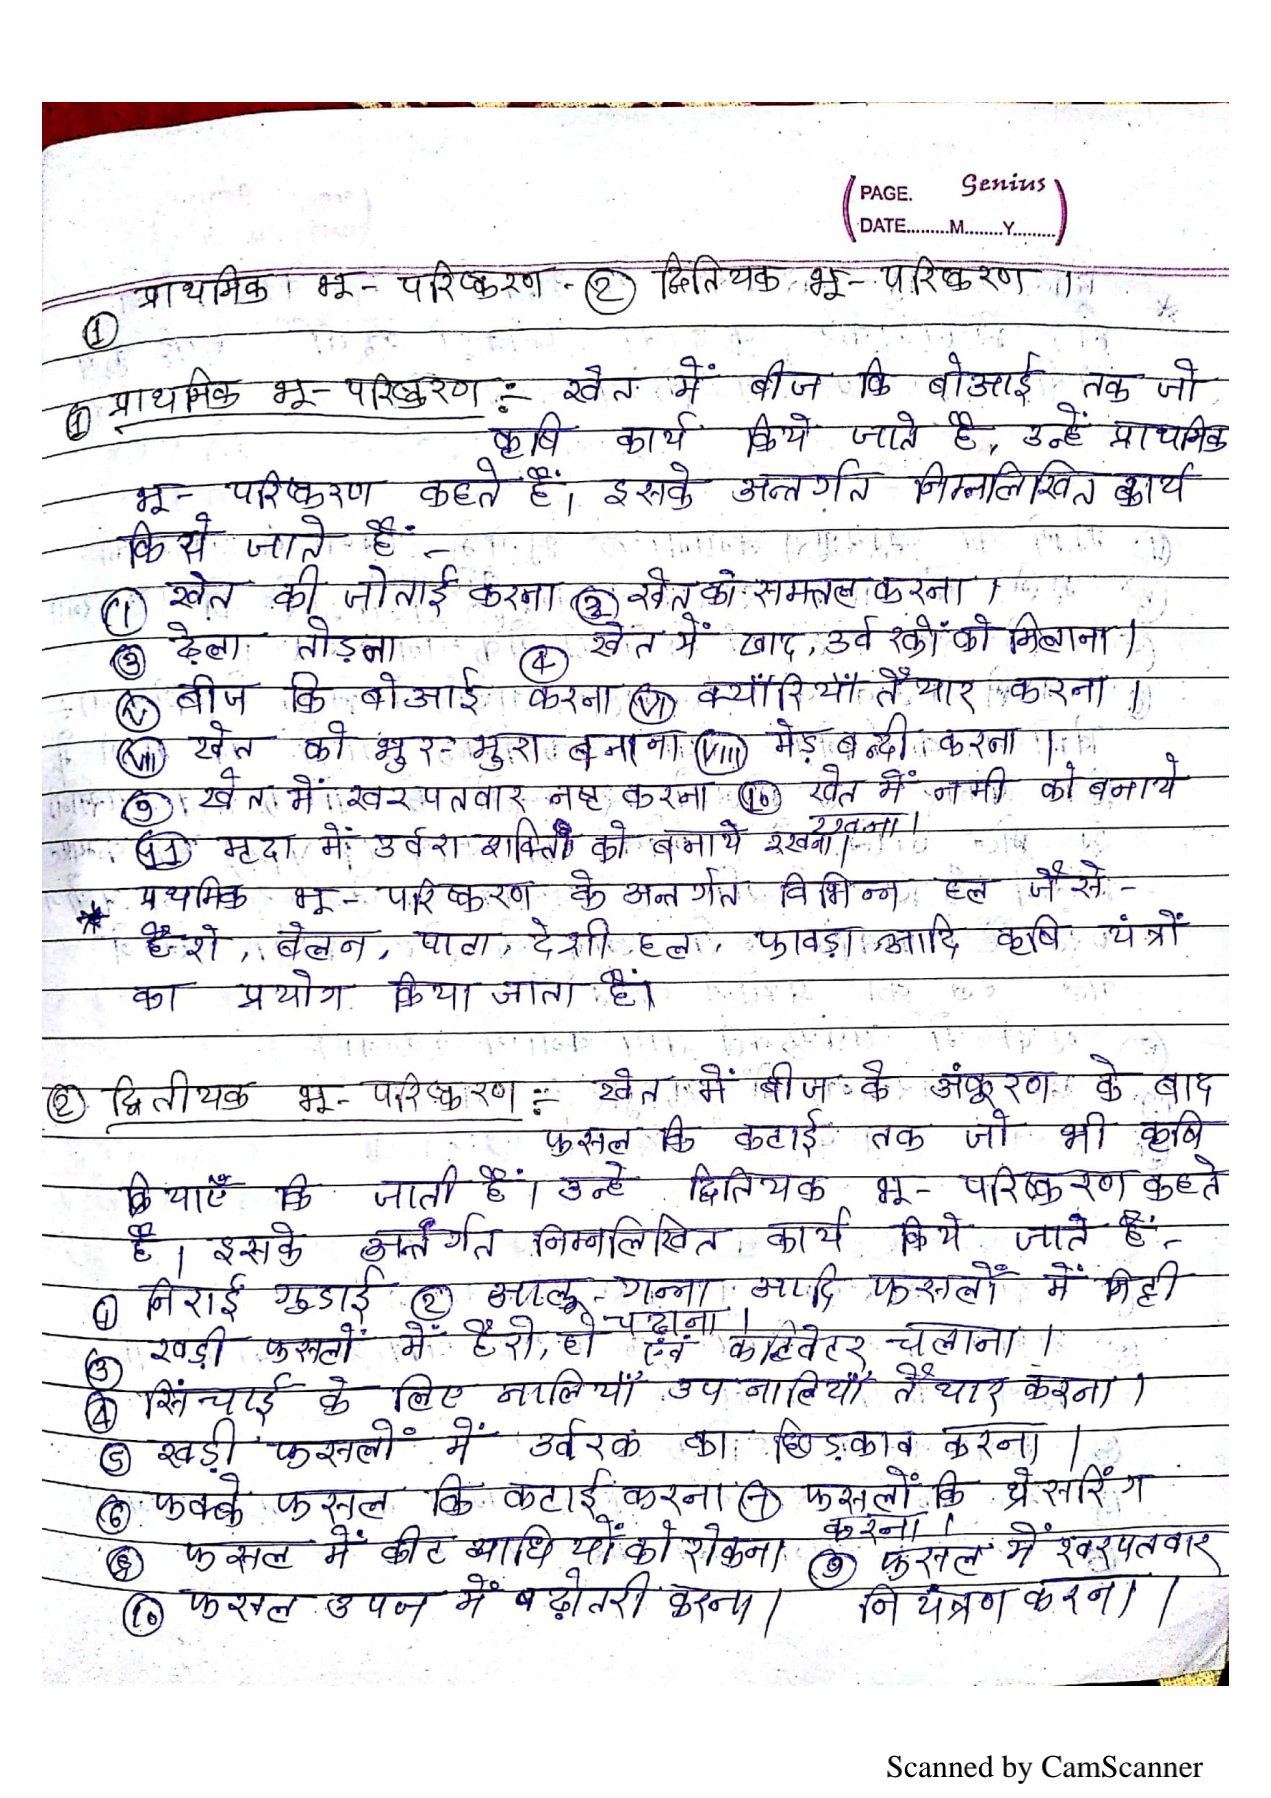 PAGE. Genius
DATE.........M........Y.........
① प्राथमिक भू - परिष्करण - ② द्वितियक भू - परिष्करण ।
① प्राथमिक भू - परिष्करण :- खेत में बीज कि बोआई तक जो
कृषि कार्य किये जाते है, उन्हें प्राथमिक
भू - परिष्करण कहते हैं। इसके अन्तर्गत निम्नलिखित कार्य
किये जाते हैं -
① खेत की जोताई करना ② खेत को समतल करना ।
③ ढेला तोड़ना ④ खेत में खाद, उर्वरकों को मिलाना ।
Ⓥ बीज कि बोआई करना (VI) क्याँरियाँ तैयार करना ।
(VII) खेत को भुर-भुरा बनाना (VIII) मेड़ बन्दी करना ।
⑨ खेत में खरपतवार नष्ट करना ⑩ खेत में नमी को बनाये
रखना।
⑪ मृदा में उर्वरा शक्ति को बनाये रखना।
* प्रथमिक भू - परिष्करण के अन्तर्गत विभिन्न हल जैसे -
हैरो, बेलन, पाटा, देशी हल, फावड़ा आदि कृषि यंत्रों
का प्रयोग किया जाता है।
② द्वितीयक भू - परिष्करण :- खेत में बीज के अंकुरण के बाद
फसल कि कटाई तक जो भी कृषि
क्रियाएँ कि जाती हैं। उन्हे द्वितियक भू - परिष्करण कहते
है। इसके अन्तर्गत निम्नलिखित कार्य किये जाते हैं -
① निराई गुडाई ② आलू - गन्ना आदि फसलों में मिट्टी
चढ़ाना ।
③ खडी फसलों में हैरो, हो एंव कल्टिवेटर चलाना ।
④ सिंन्चाई के लिए नालियाँ उप नालियाँ तैयार करना ।
⑤ खड़ी फसलों में उर्वरक का छिड़काव करना ।
⑥ फक्के फसल कि कटाई करना ⑦ फसलों कि थ्रेसरिंग
करना ।
⑧ फसल में कीट व्याधियों को रोकना ⑨ फसल में खरपतवार
नियंत्रण करना ।
⑩ फसल उपज में बढ़ोतरी करना।
Scanned by CamScanner